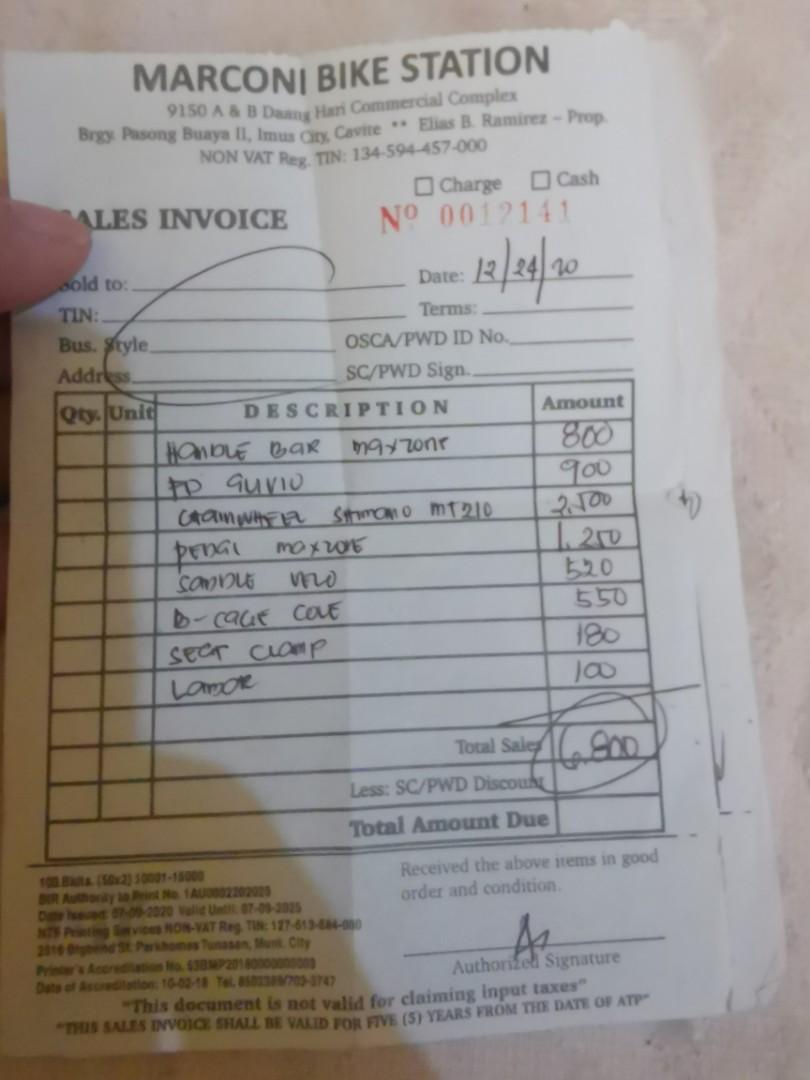 MARCONI BIKE STATION
9150 A & B Daang Hari Commercial Complex
Brgy. Pasong Buaya II, Imus City, Cavite ** Elias B. Ramirez – Prop.
NON VAT Reg. TIN: 134-594-457-000
Charge Cash
ALES INVOICE Nº 0012141
Sold to: Date: 12/24/20
TIN: Terms:
Bus. Style OSCA/PWD ID No.
Address SC/PWD Sign.
Qty. Unit DESCRIPTION Amount
HANDLE BAR MAXZONE 800
FD 900
CHAINWHEEL SHIMANO MT210 2,500
PEDAL MAXZONE 1,250
SADDLE VELO 520
B-CAGE COLE 550
SEAT CLAMP 180
LABOR 100
Total Sales 6,800
Less: SC/PWD Discount
Total Amount Due
100 Bklts. (50x2) 10001-15000
BIR Authority to Print No. 1AU0002202029
Date Issued: 07-09-2020 Valid Until: 07-09-2025
NTS Printing Services NON-VAT Reg. TIN: 127-613-884-000
2816 Bigbend St. Parkhomes Tunasan, Munt. City
Printer's Accreditation No.
Date of Accreditation: 10-02-18 Tel.
Received the above items in good
order and condition.
Authorized Signature
"This document is not valid for claiming input taxes"
"THIS SALES INVOICE SHALL BE VALID FOR FIVE (5) YEARS FROM THE DATE OF ATP"